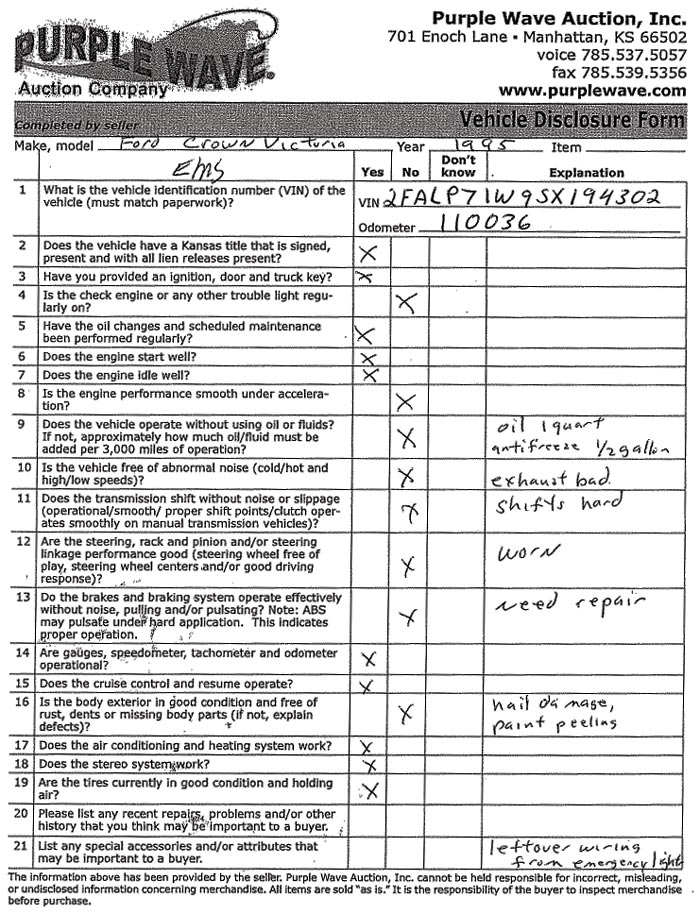 PURPLE WAVE.
Auction Company
Purple Wave Auction, Inc.
701 Enoch Lane • Manhattan, KS 66502
voice 785.537.5057
fax 785.539.5356
www.purplewave.com
Completed by Seller Vehicle Disclosure Form
Make, model Ford Crown Victoria Year 1995 Item
EMS Yes No Don't know Explanation
1 What is the vehicle identification number (VIN) of the
vehicle (must match paperwork)? VIN 2FALP71W9SX194302
Odometer 110036
2 Does the vehicle have a Kansas title that is signed,
present and with all lien releases present? X
3 Have you provided an ignition, door and truck key? X
4 Is the check engine or any other trouble light regu-
larly on? X
5 Have the oil changes and scheduled maintenance
been performed regularly? X
6 Does the engine start well? X
7 Does the engine idle well? X
8 Is the engine performance smooth under accelera-
tion? X
9 Does the vehicle operate without using oil or fluids? oil 1 quart
If not, approximately how much oil/fluid must be X
added per 3,000 miles of operation? antifreeze 1/2 gallon
10 Is the vehicle free of abnormal noise (cold/hot and
high/low speeds)? X exhaust bad
11 Does the transmission shift without noise or slippage shifts hard
(operational/smooth/ proper shift points/clutch oper-
ates smoothly on manual transmission vehicles)? X
12 Are the steering, rack and pinion and/or steering
linkage performance good (steering wheel free of worn
play, steering wheel centers and/or good driving X
response)?
13 Do the brakes and braking system operate effectively need repair
without noise, pulling and/or pulsating? Note: ABS
may pulsate under hard application. This indicates X
proper operation.
14 Are gauges, speedometer, tachometer and odometer
operational? X
15 Does the cruise control and resume operate? X
16 Is the body exterior in good condition and free of hail damage,
rust, dents or missing body parts (if not, explain X paint peeling
defects)?
17 Does the air conditioning and heating system work? X
18 Does the stereo system work? X
19 Are the tires currently in good condition and holding
air? X
20 Please list any recent repairs, problems and/or other
history that you think may be important to a buyer.
21 List any special accessories and/or attributes that leftover wiring
may be important to a buyer. from emergency lights
The information above has been provided by the seller. Purple Wave Auction, Inc. cannot be held responsible for incorrect, misleading,
or undisclosed information concerning merchandise. All items are sold "as is." It is the responsibility of the buyer to inspect merchandise
before purchase.